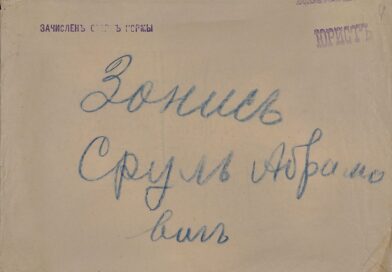 ЗАЧИСЛЕНЪ СВЕРХЪ НОРМЫ
ЮРИСТЪ
Зонисъ
Сруль Абрамо
вичъ